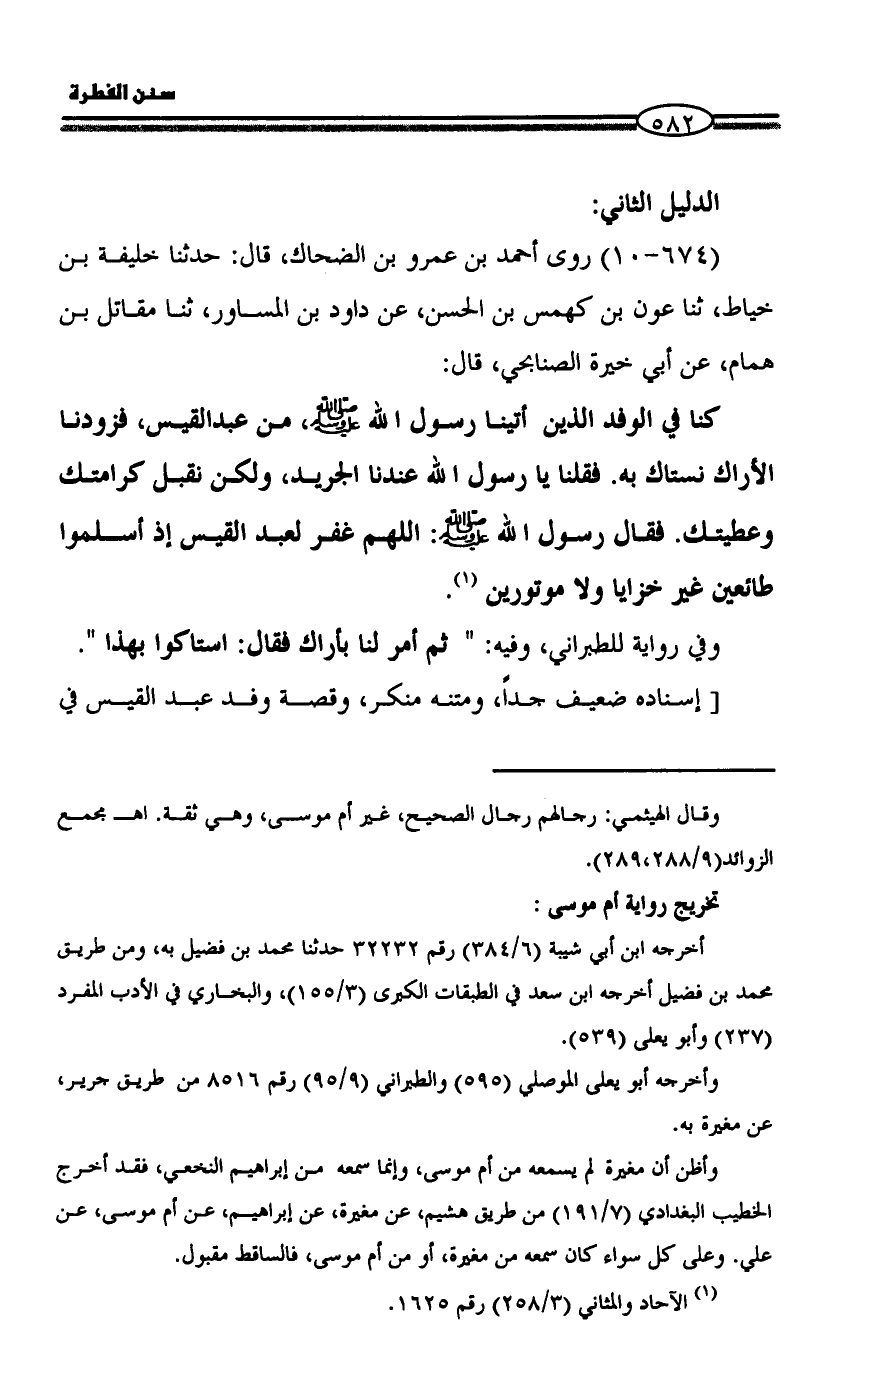 سنن الفطرة
٥٨٢
الدليل الثاني:
(٦٧٤-١٠) روى أحمد بن عمرو بن الضحاك، قال: حدثنا خليفة بن
خياط، ثنا عون بن كهمس بن الحسن، عن داود بن المساور، ثنا مقاتل بن
همام، عن أبي خيرة الصنابحي، قال:
كنا في الوفد الذين أتينا رسول الله ﷺ، من عبدالقيس، فزودنا
الأراك نستاك به. فقلنا يا رسول الله عندنا الجريد، ولكن نقبل كرامتك
وعطيتك. فقال رسول الله ﷺ: اللهم غفر لعبد القيس إذ أسلموا
طائعين غير خزايا ولا موتورين (١).
وفي رواية للطبراني، وفيه: " ثم أمر لنا بأراك فقال: استاكوا بهذا ".
[ إسناده ضعيف جداً، ومتنه منكر، وقصة وفد عبد القيس في
وقال الهيثمي: رجالهم رجال الصحيح، غير أم موسى، وهي ثقة. اهـ مجمع
الزوائد(٢٨٩،٢٨٨/٩).
تخريج رواية أم موسى :
أخرجه ابن أبي شيبة (٣٨٤/٦) رقم ٣٢٢٣٢ حدثنا محمد بن فضيل به، ومن طريق
محمد بن فضيل أخرجه ابن سعد في الطبقات الكبرى (١٥٥/٣)، والبخاري في الأدب المفرد
(٢٣٧) وأبو يعلى (٥٣٩).
وأخرجه أبو يعلى الموصلي (٥٩٥) والطبراني (٩٥/٩) رقم ٨٥١٦ من طريق جرير،
عن مغيرة به.
وأظن أن مغيرة لم يسمعه من أم موسى، وإنما سمعه من إبراهيم النخعي، فقد أخرج
الخطيب البغدادي (١٩١/٧) من طريق هشيم، عن مغيرة، عن إبراهيم، عن أم موسى، عن
علي. وعلى كل سواء كان سمعه من مغيرة، أو من أم موسى، فالساقط مقبول.
(١) الآحاد والمثاني (٢٥٨/٣) رقم ١٦٢٥.